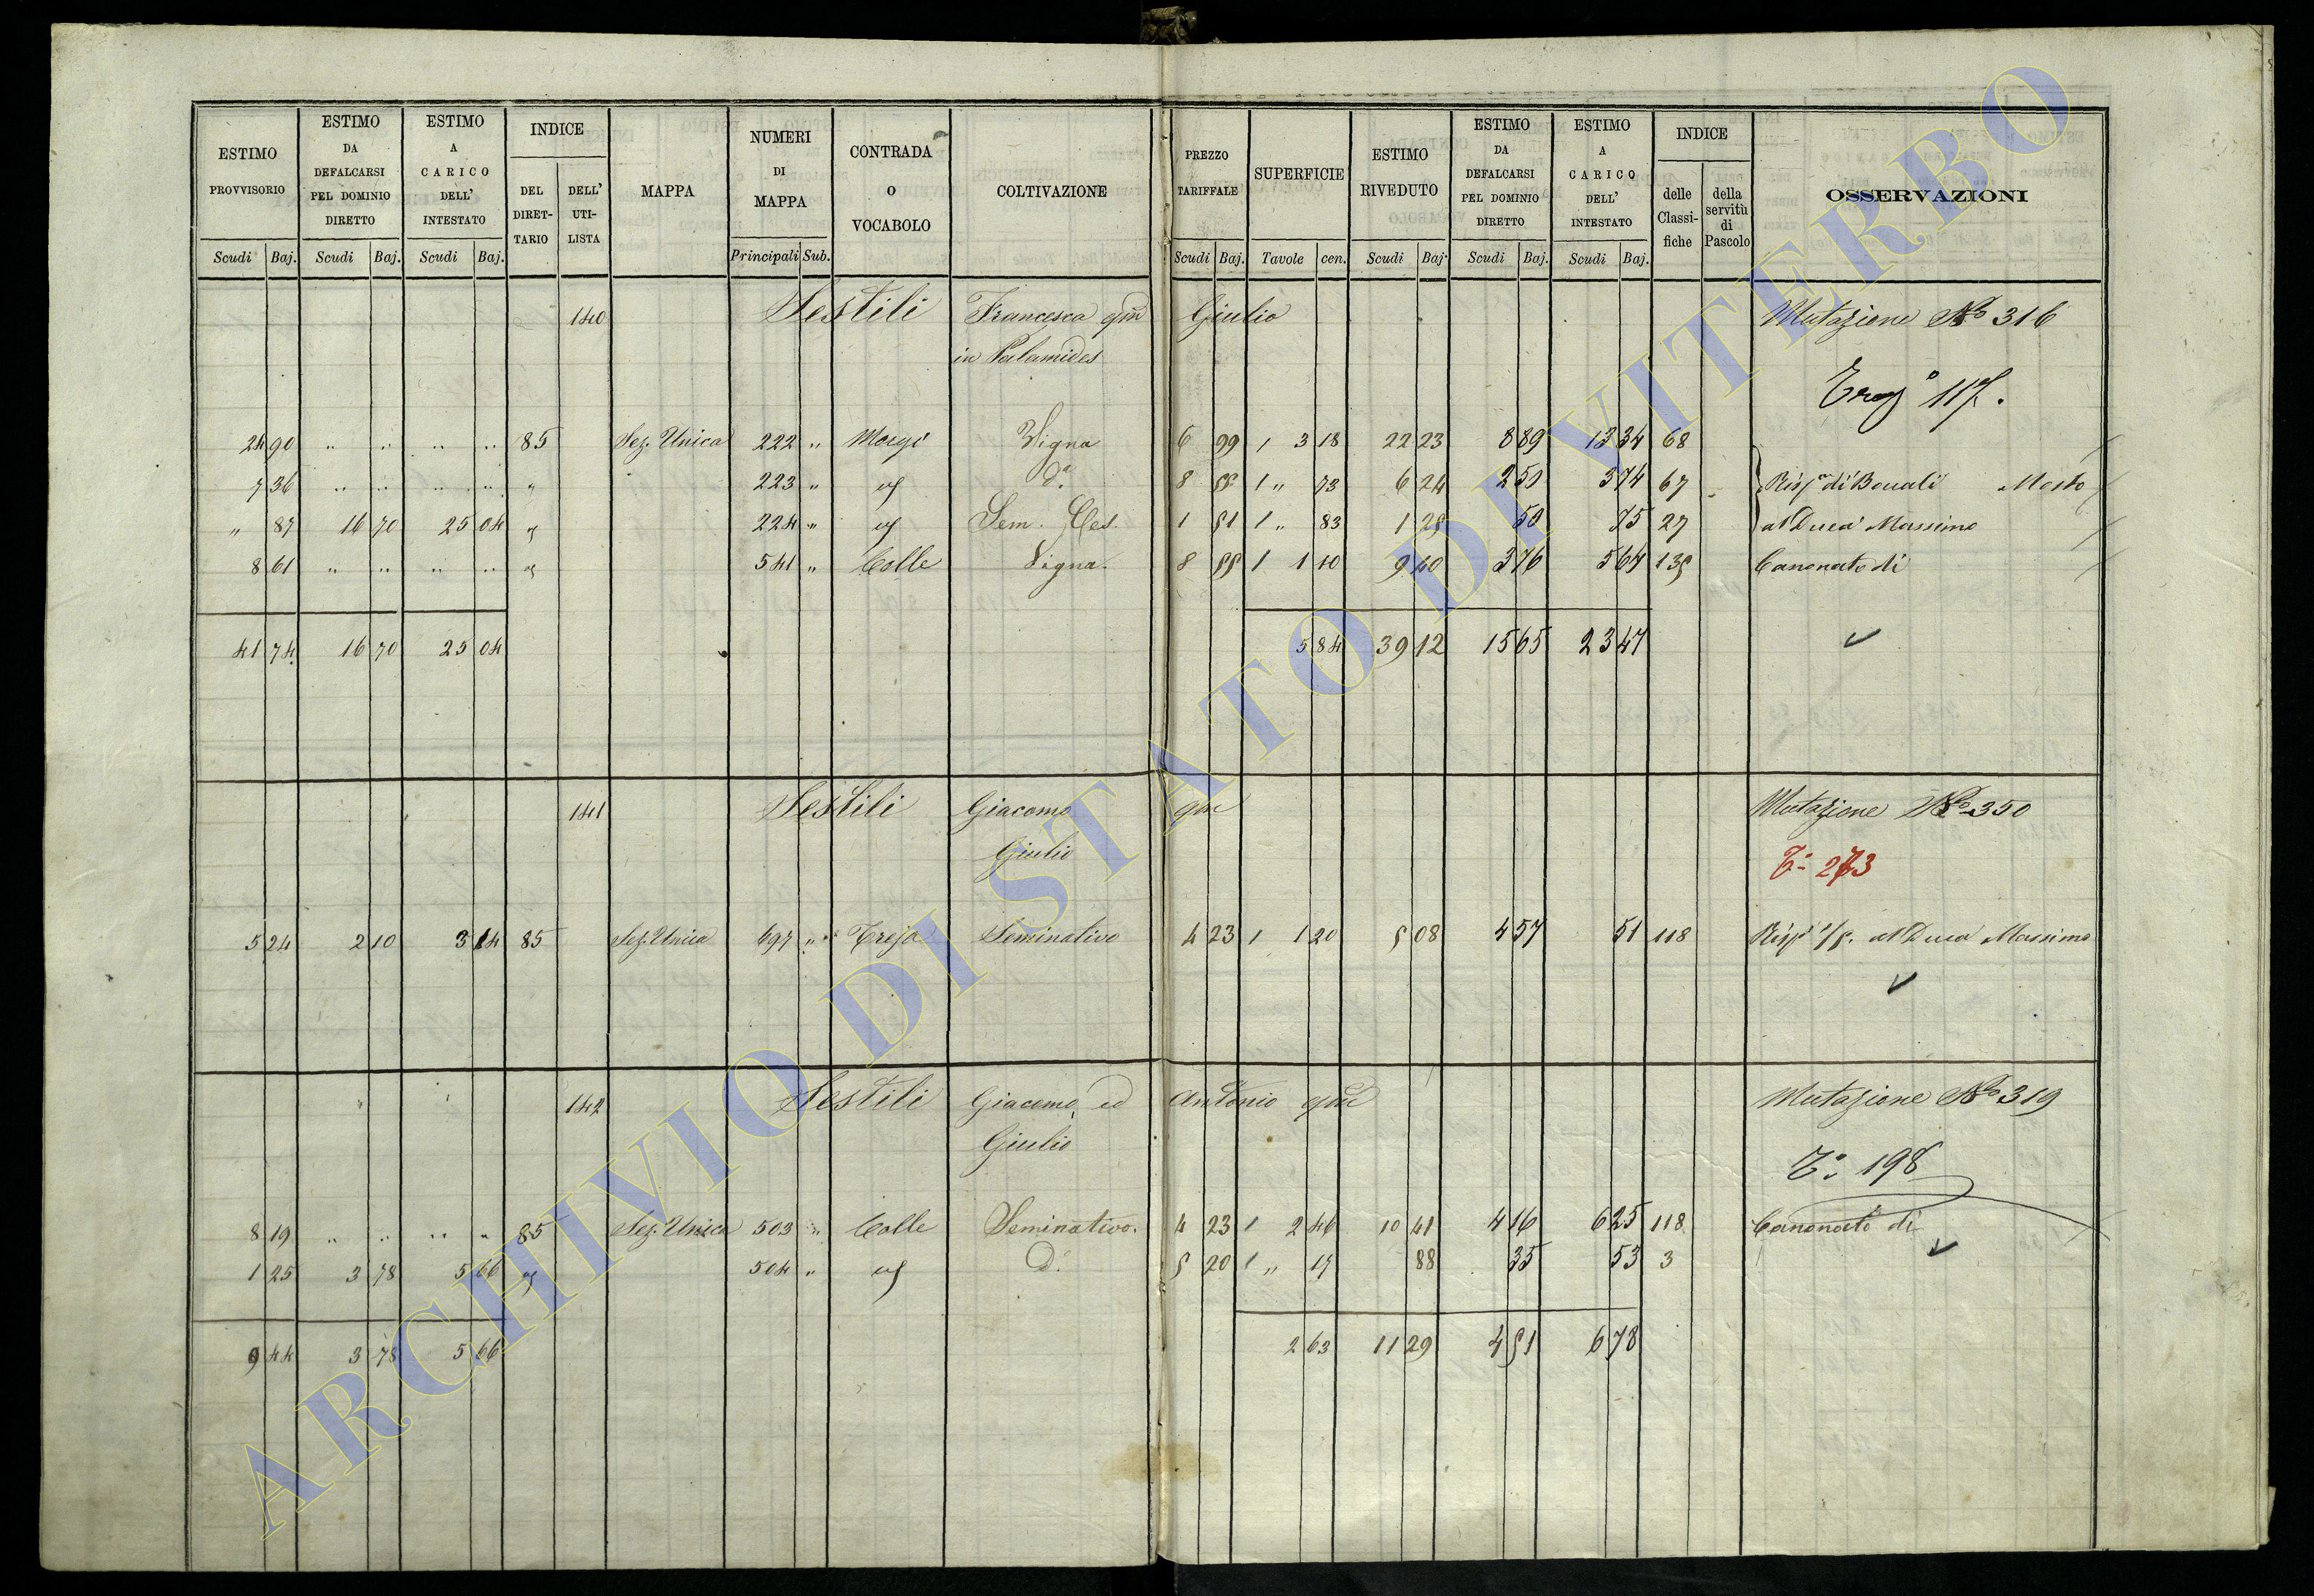 ESTIMO PROVVISORIO | ESTIMO DA DEFALCARSI PEL DOMINIO DIRETTO | ESTIMO A CARICO DELL' INTESTATO | INDICE | MAPPA | NUMERI DI MAPPA | CONTRADA O VOCABOLO | COLTIVAZIONE | PREZZO TARIFFALE | SUPERFICIE | ESTIMO RIVEDUTO | ESTIMO DA DEFALCARSI PEL DOMINIO DIRETTO | ESTIMO A CARICO DELL' INTESTATO | INDICE | OSSERVAZIONI
DEL DIRET-TARIO | DELL' UTI-LISTA | delle Classi-fiche | della servitù di Pascolo
Scudi | Baj. | Scudi | Baj. | Scudi | Baj. | Principali | Sub. | Scudi | Baj. | Tavole | cen. | Scudi | Baj. | Scudi | Baj. | Scudi | Baj.
140 Sestili Francesca qm Giulio Mutazione No 316
in Palamides
117.
24 90 " " " " 85 Sez. Unica 222 " Vigna 6 99 1 3 18 22 23 8 89 13 34 68
7 36 " " " " " 223 " da 8 1 " 73 6 24 2 50 3 74 67
" 87 16 70 25 04 224 " Sem. 1 51 1 " 83 1 25 50 75 27 al Duca Massimo
8 61 " " " " 541 " Colle Vigna. 8 1 1 10 9 40 3 76 5 64 135 Canonato di
41 74 16 70 25 04 5 84 39 12 15 65 23 47
141 Sestili Giacomo qm Mutazione No 350
Giulio
To 273
5 24 2 10 3 14 85 Sez. Unica 697 " Treja Seminativo 4 23 1 1 20 5 08 4 57 51 118 1/5. al Duca Massimo
142 Sestili Giacomo, ed Antonio qm Mutazione No 319
Giulio
To 198
8 19 " " " " 85 Sez. Unica 503 " Colle Seminativo. 4 23 1 2 46 10 41 4 16 6 25 118 Canonato di
1 25 3 78 5 66 504 " do 5 20 1 " 17 88 35 53 3
9 44 3 78 5 66 2 63 11 29 4 51 6 78
ARCHIVIO DI STATO DI VITERBO